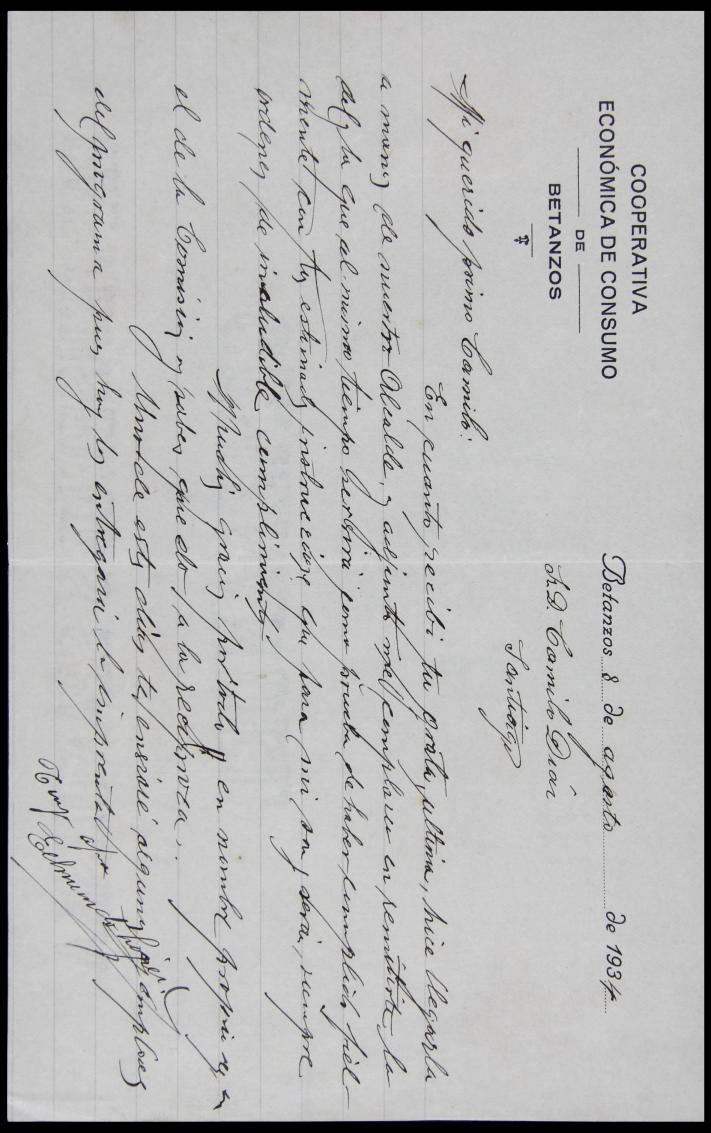 COOPERATIVA
ECONÓMICA DE CONSUMO
DE
BETANZOS
Betanzos 8 de agosto de 1934
Sr. D. Camilo Díaz
Santiago
Mi querido primo Camilo:
En cuanto recibí tu grata última, hice llegarla
a manos de nuestro Alcalde, y adjunto me complazco en remitirte la
del que al mismo tiempo servirá como prueba de haber cumplido fiel-
mente con tus estimadas instrucciones que para mi son y serán, siempre
ordenes de ineludible cumplimiento.
Muchas gracias por todo y en nombre propio y en
el de la Comisión y sabes que es a la recíproca.
Uno de estos días te enviaré algunos ejemplares
del programa pues hoy los entregará la imprenta.